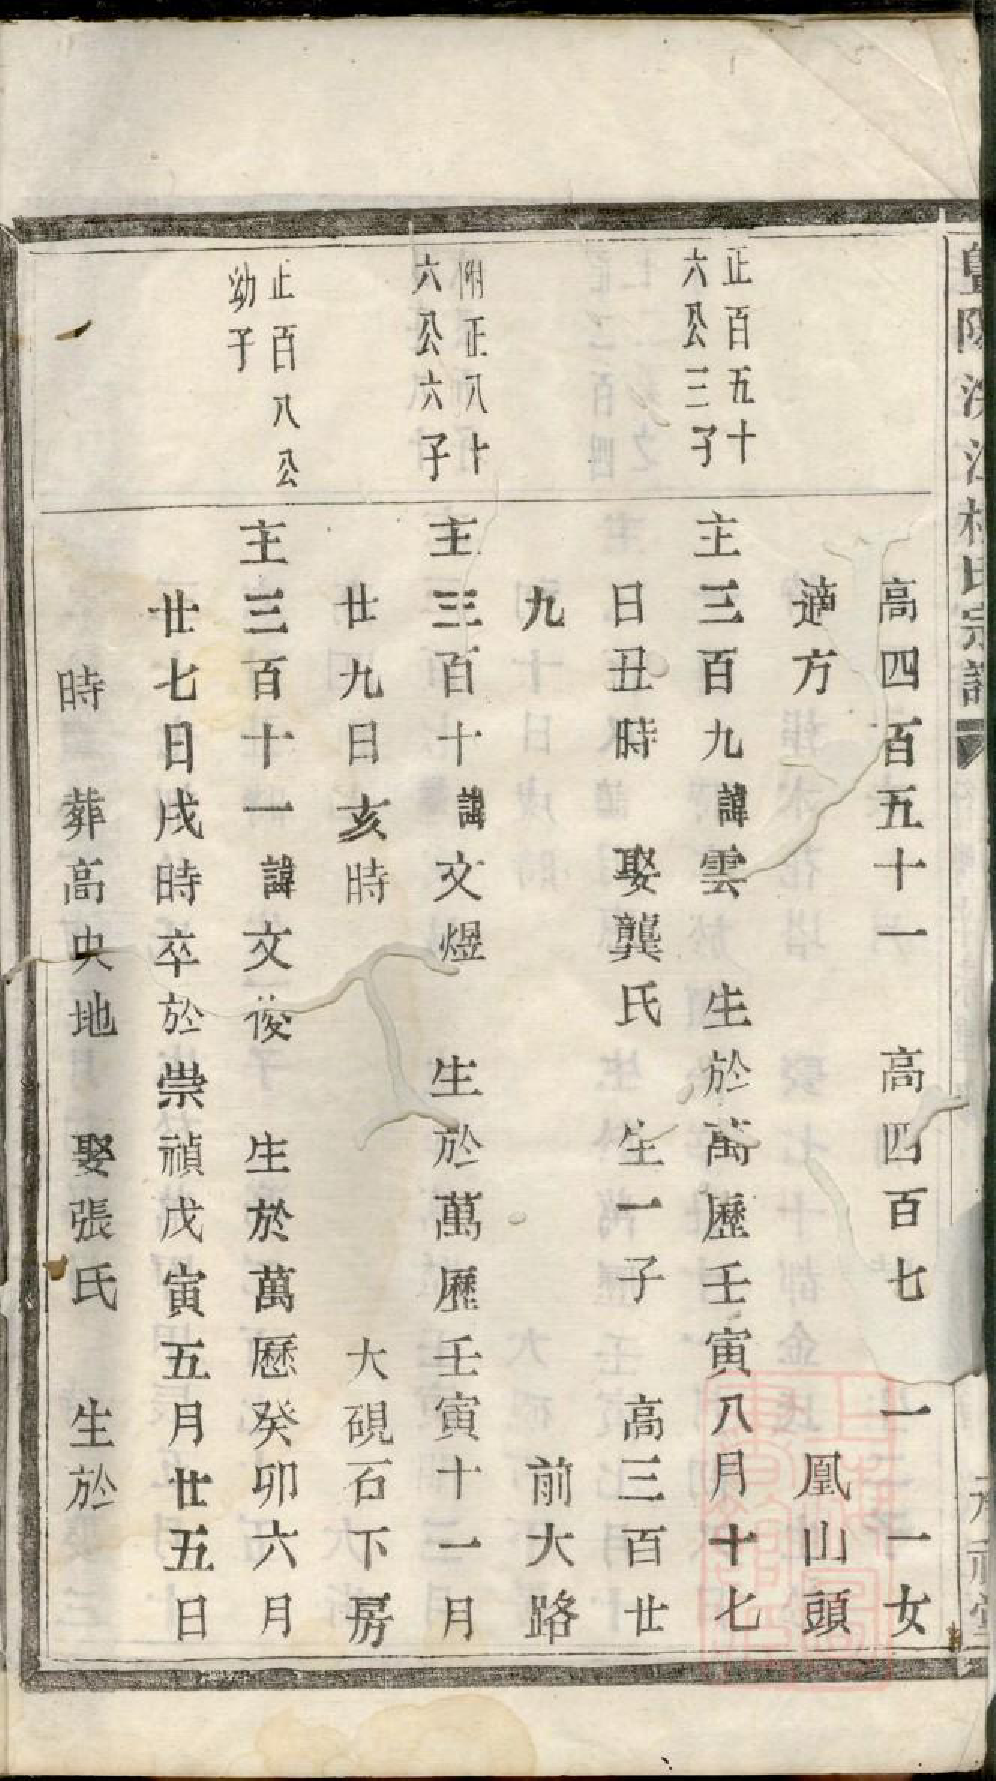 高四百五十一　高四百七　一一女
適方　鳳山頭
正百五十
六公三子
主三百九諱雲　生於萬歷壬寅八月十七
日丑時　娶龔氏　生一子　高三百廿
九　前大路
附正八十
六公六子
主三百十諱文煜　生於萬歷壬寅十一月
廿九日亥時　大硯石下房
正百八公
幼子
主三百十一諱文俊　生於萬歷癸卯六月
廿七日戌時卒於崇禎戊寅五月廿五日
時　葬高央地　娶張氏　生於